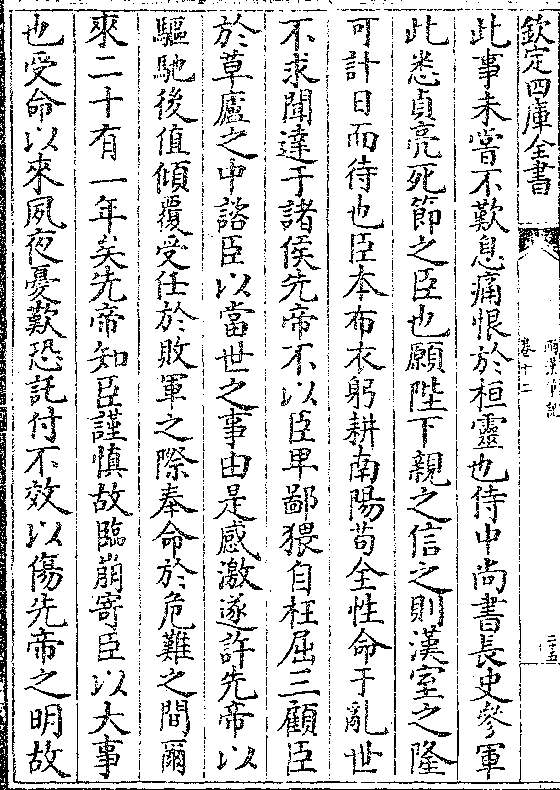 欽定四庫全書
卷十二
此事未嘗不歎息痛恨於桓靈也侍中尚書長史參軍
此悉貞亮死節之臣也願陛下親之信之則漢室之隆
可計日而待也臣本布衣躬耕南陽苟全性命于亂世
不求聞達于諸侯先帝不以臣卑鄙猥自枉屈三顧臣
於草廬之中諮臣以當世之事由是感激遂許先帝以
驅馳後值傾覆受任於敗軍之際奉命於危難之間爾
來二十有一年矣先帝知臣謹慎故臨崩寄臣以大事
也受命以來夙夜憂歎恐託付不效以傷先帝之明故